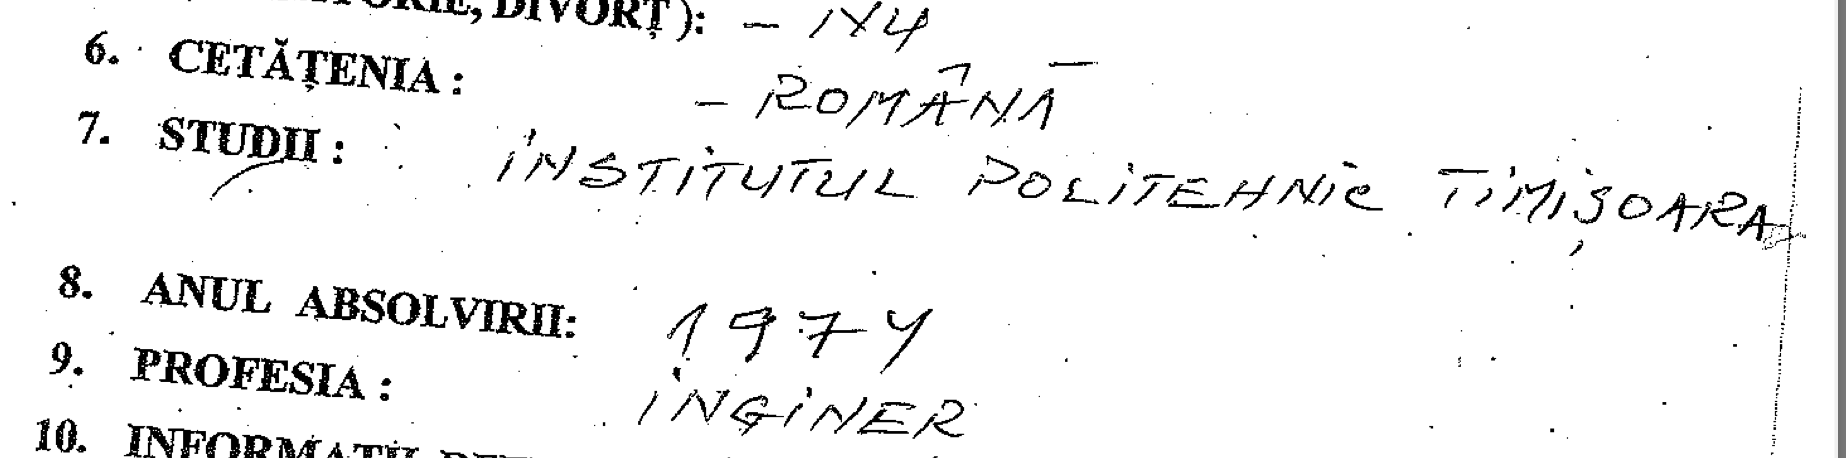 DIVORȚ): -
6. CETĂȚENIA : - ROMÂNĂ
7. STUDII : INSTITUTUL POLITEHNIC TIMIȘOARA
8. ANUL ABSOLVIRII: 1974
9. PROFESIA : INGINER
10.